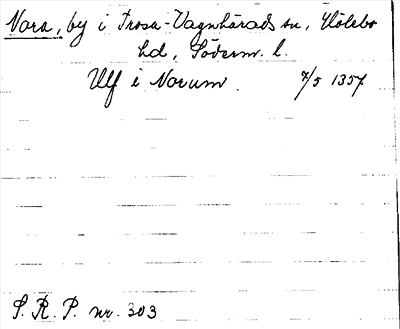 Nora, by i Trosa-Vagnhärads sn, Hölebo
hd, Söderm. l.
Ulf i Norum. 7/5 1357
S. R. P. nr. 303